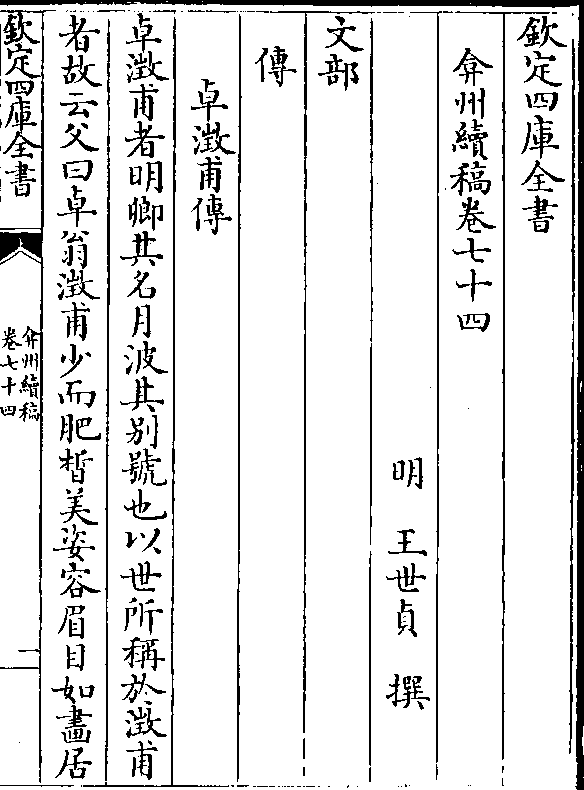 欽定四庫全書
弇州續稿卷七十四
明 王世貞 撰
文部
傳
卓澂甫傳
卓澂甫者明卿其名月波其别號也以世所稱於澂甫
者故云父曰卓翁澂甫少而肥晳美姿容眉目如畫居
欽定四庫全書
弇州續稿
卷七十四
一